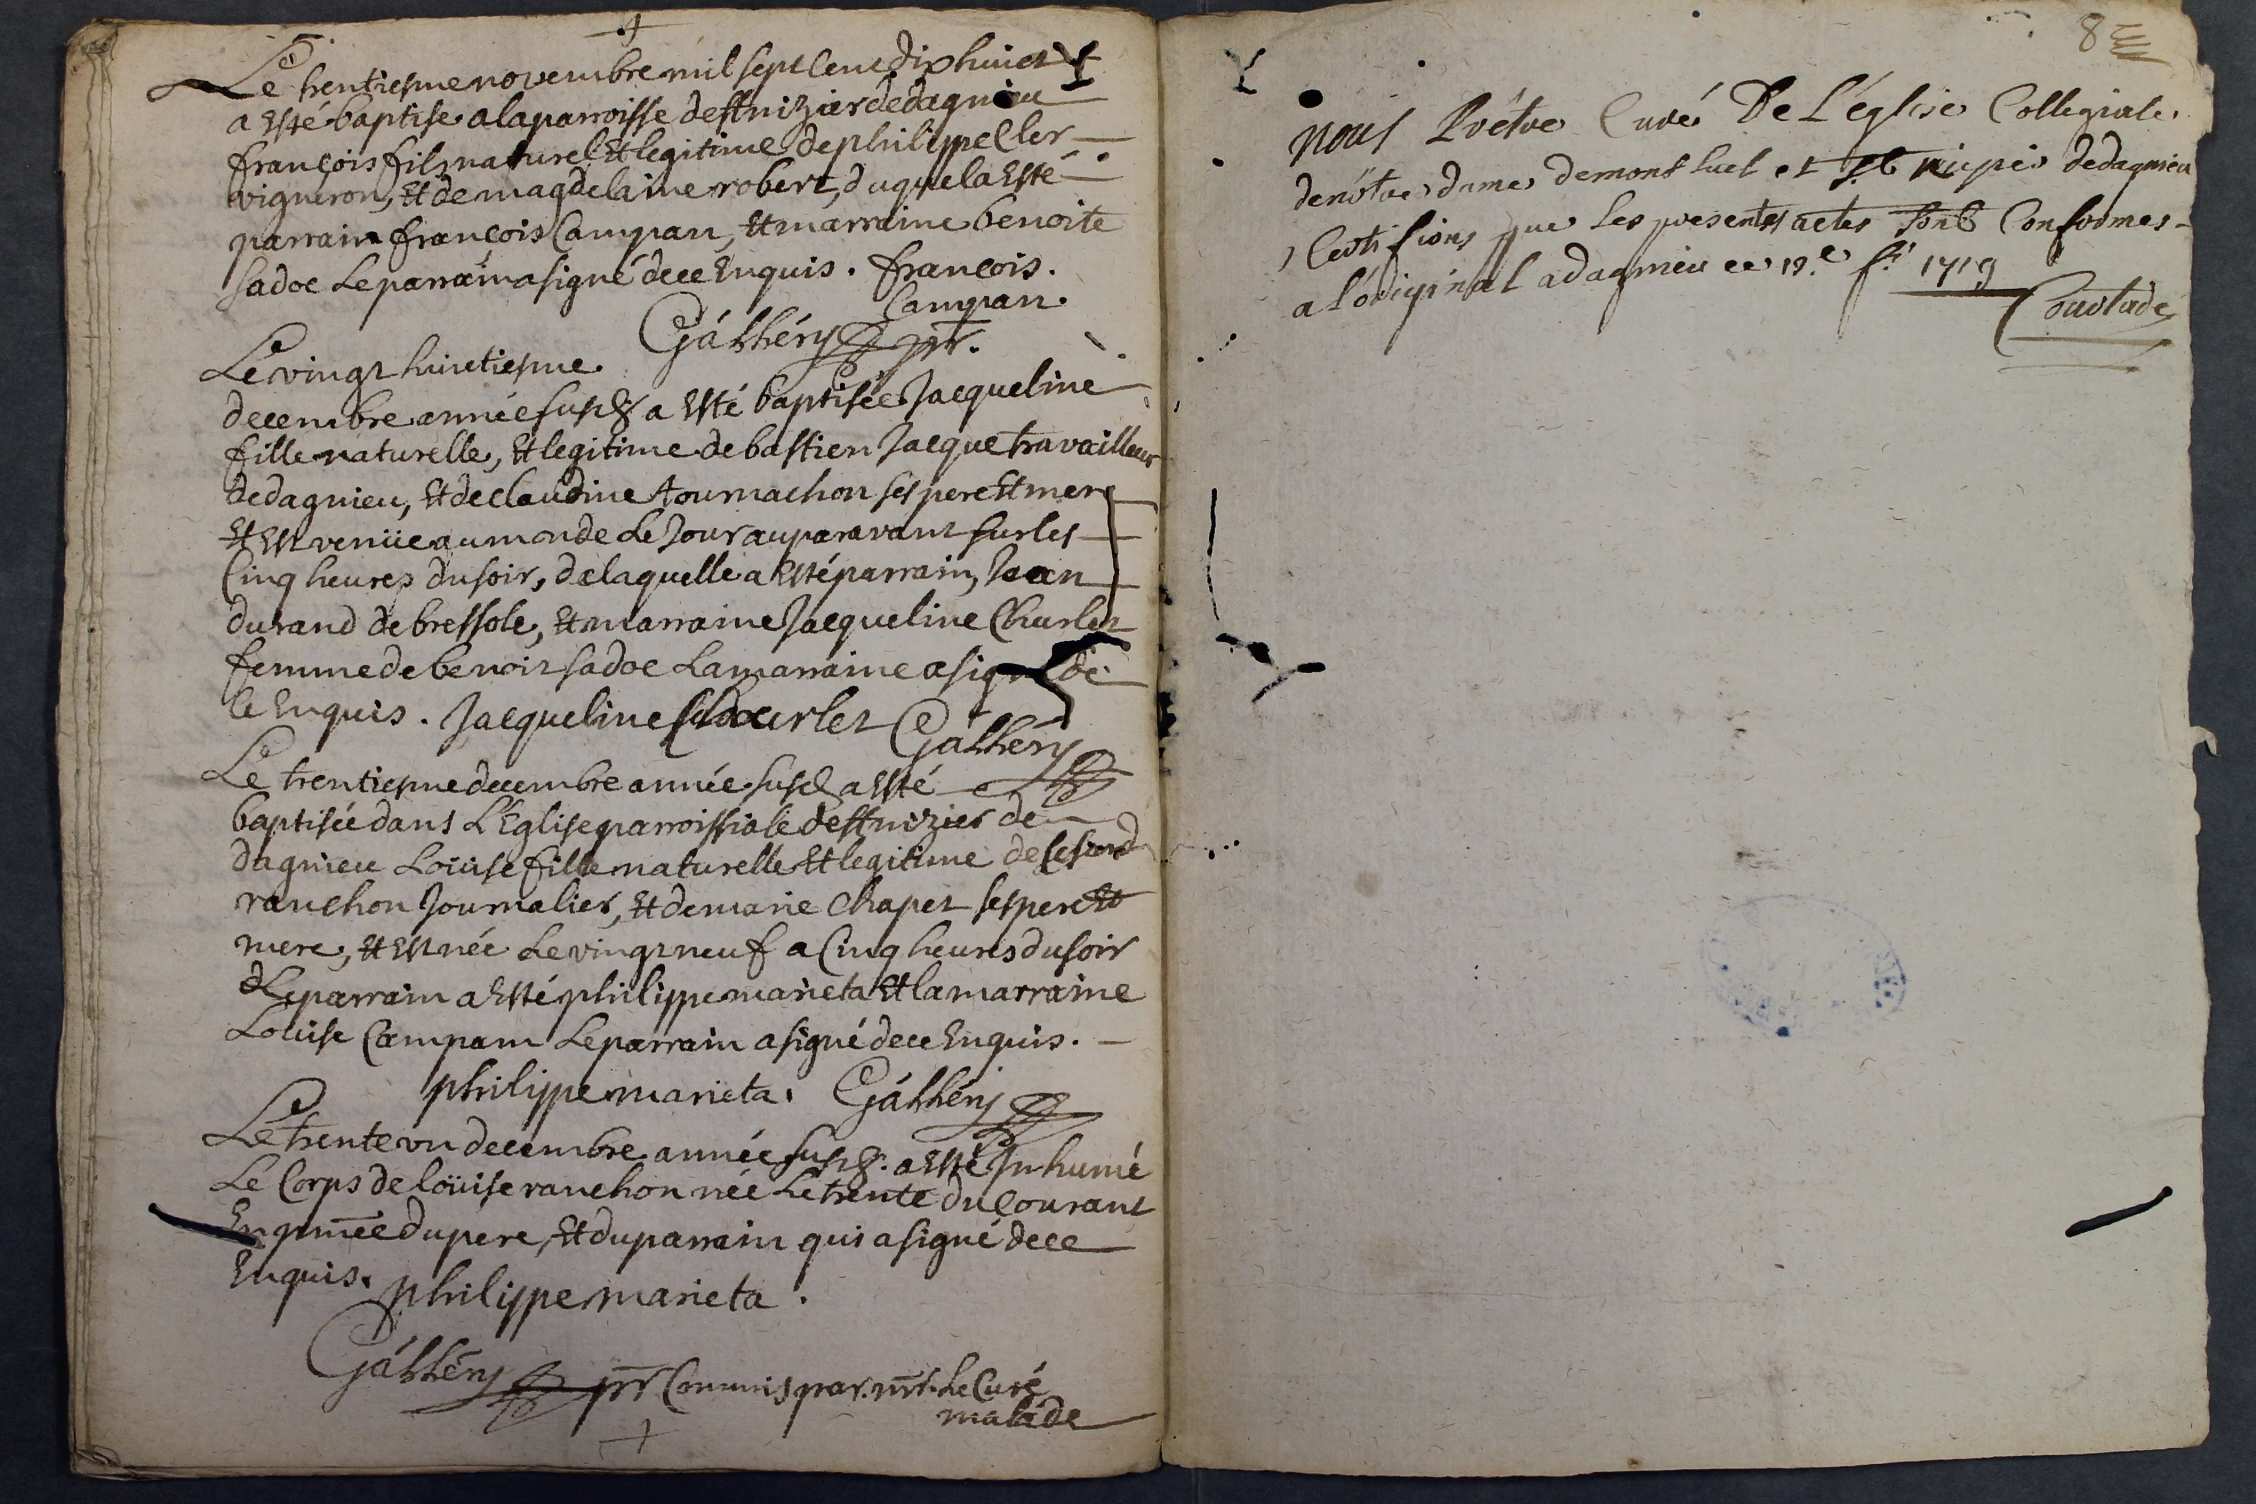 Le trentiesme novembre mil sept cent dix huict
a esté baptise a la parroisse de st nizier de dagnieu
françois fils naturel, et legitime de philippe Cler
vigneron, et de magdelaine robert, duquel a esté
parrain françois Campan, et marraine benoite
sadoc le parrain a signé de ce Enquis. françois.
Campan.
Gáthéry ptr.
Le vingt huictiesme
decembre année susd a esté baptisée Jacqueline
fille naturelle, et legitime de bastien Jacque travailleur
de dagnieu, et de claudine tournachon ses pere et mere
et est venüe au monde le Jour auparavant sur les
Cinq heures du soir, de laquelle a esté parrain, Jean
durand de bressole, et marraine Jacqueline Charlet
femme de benoit sadoc la marraine a signé de
ce Enquis. Jacqueline Charlet Gáthéry
Le trentiesme decembre année susd a esté
baptisée dans L'Eglise parroissiale de st nizier de
dagnieu Loüise fille naturelle et legitime de
ranchon Journalier, et de marie Chapet ses pere et
mere, et est née le vingt neuf a Cinq heures du soir
Le parrain a esté philippe marieta et la marraine
Loüise Campam Le parrain a signé de ce Enquis.
philippe marieta. Gáthéry
Le trente un decembre année susd. a esté Inhumé
Le Corps de loüise ranchon née le trente du Courant
En pnce du pere, et du parrain qui a signé de ce
Enquis. philippe marieta.
Gáthéry ptr Commis par mr. Le Curé
malade
8
nous Prétre Curé De L'église Collegiale
de nôtre dame de mont luel et st nizier de dagnieu
Certifions que les presents actes sont Conformes
a l'original a dagnieu ce 12.e 1719
Courtade